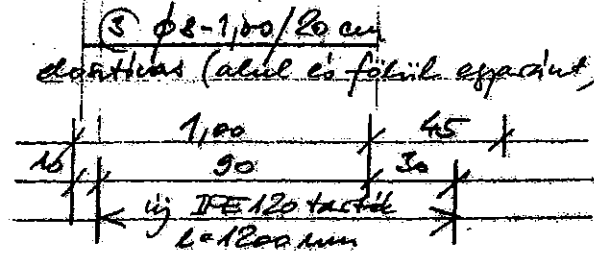 ③ ϕ8-1,00/20 cm
elosztóvas (alul és fölül egyaránt,
1,00 45
10 90 30
új IPE120 tartók
l=1200 mm